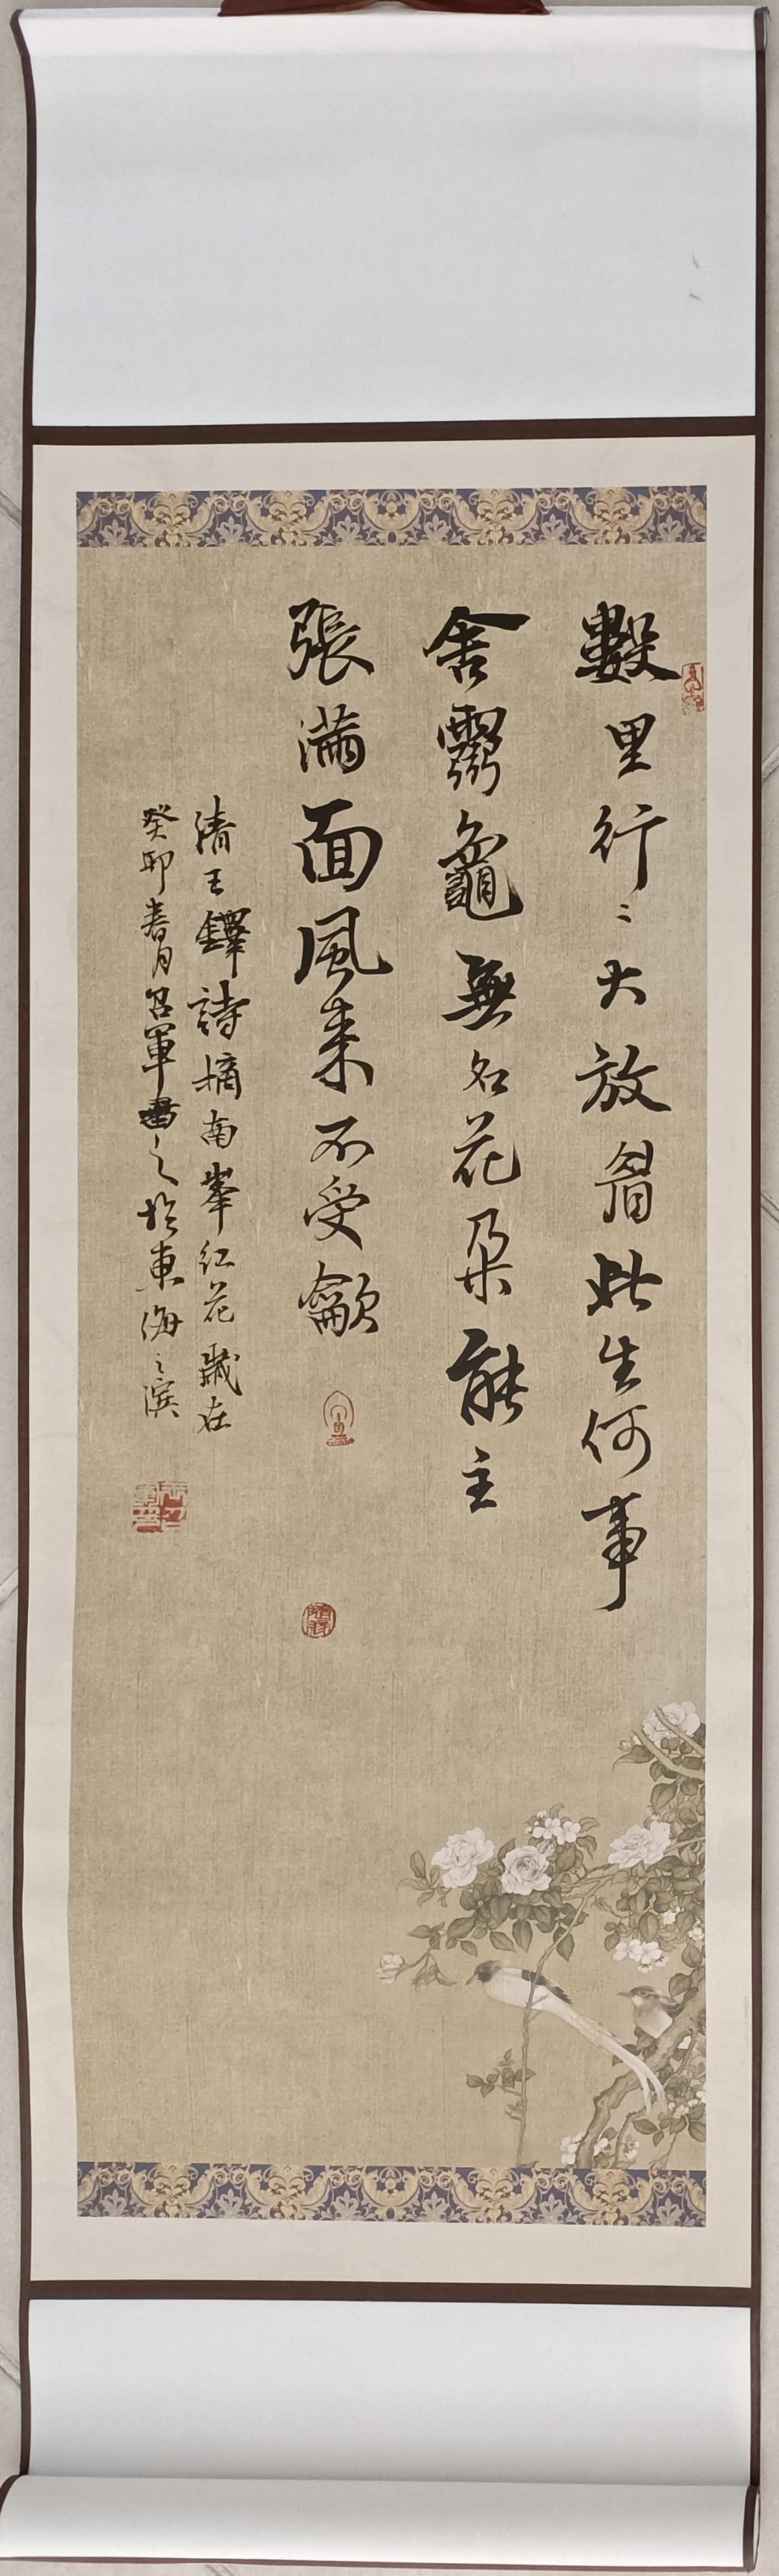 數里行〻大放睂此生何事
舍靈龜無名花朵能主
張滿面風來不受龡
清王鐸詩摘南峯紅花歲在
癸卯春月軍書之於東海之濱